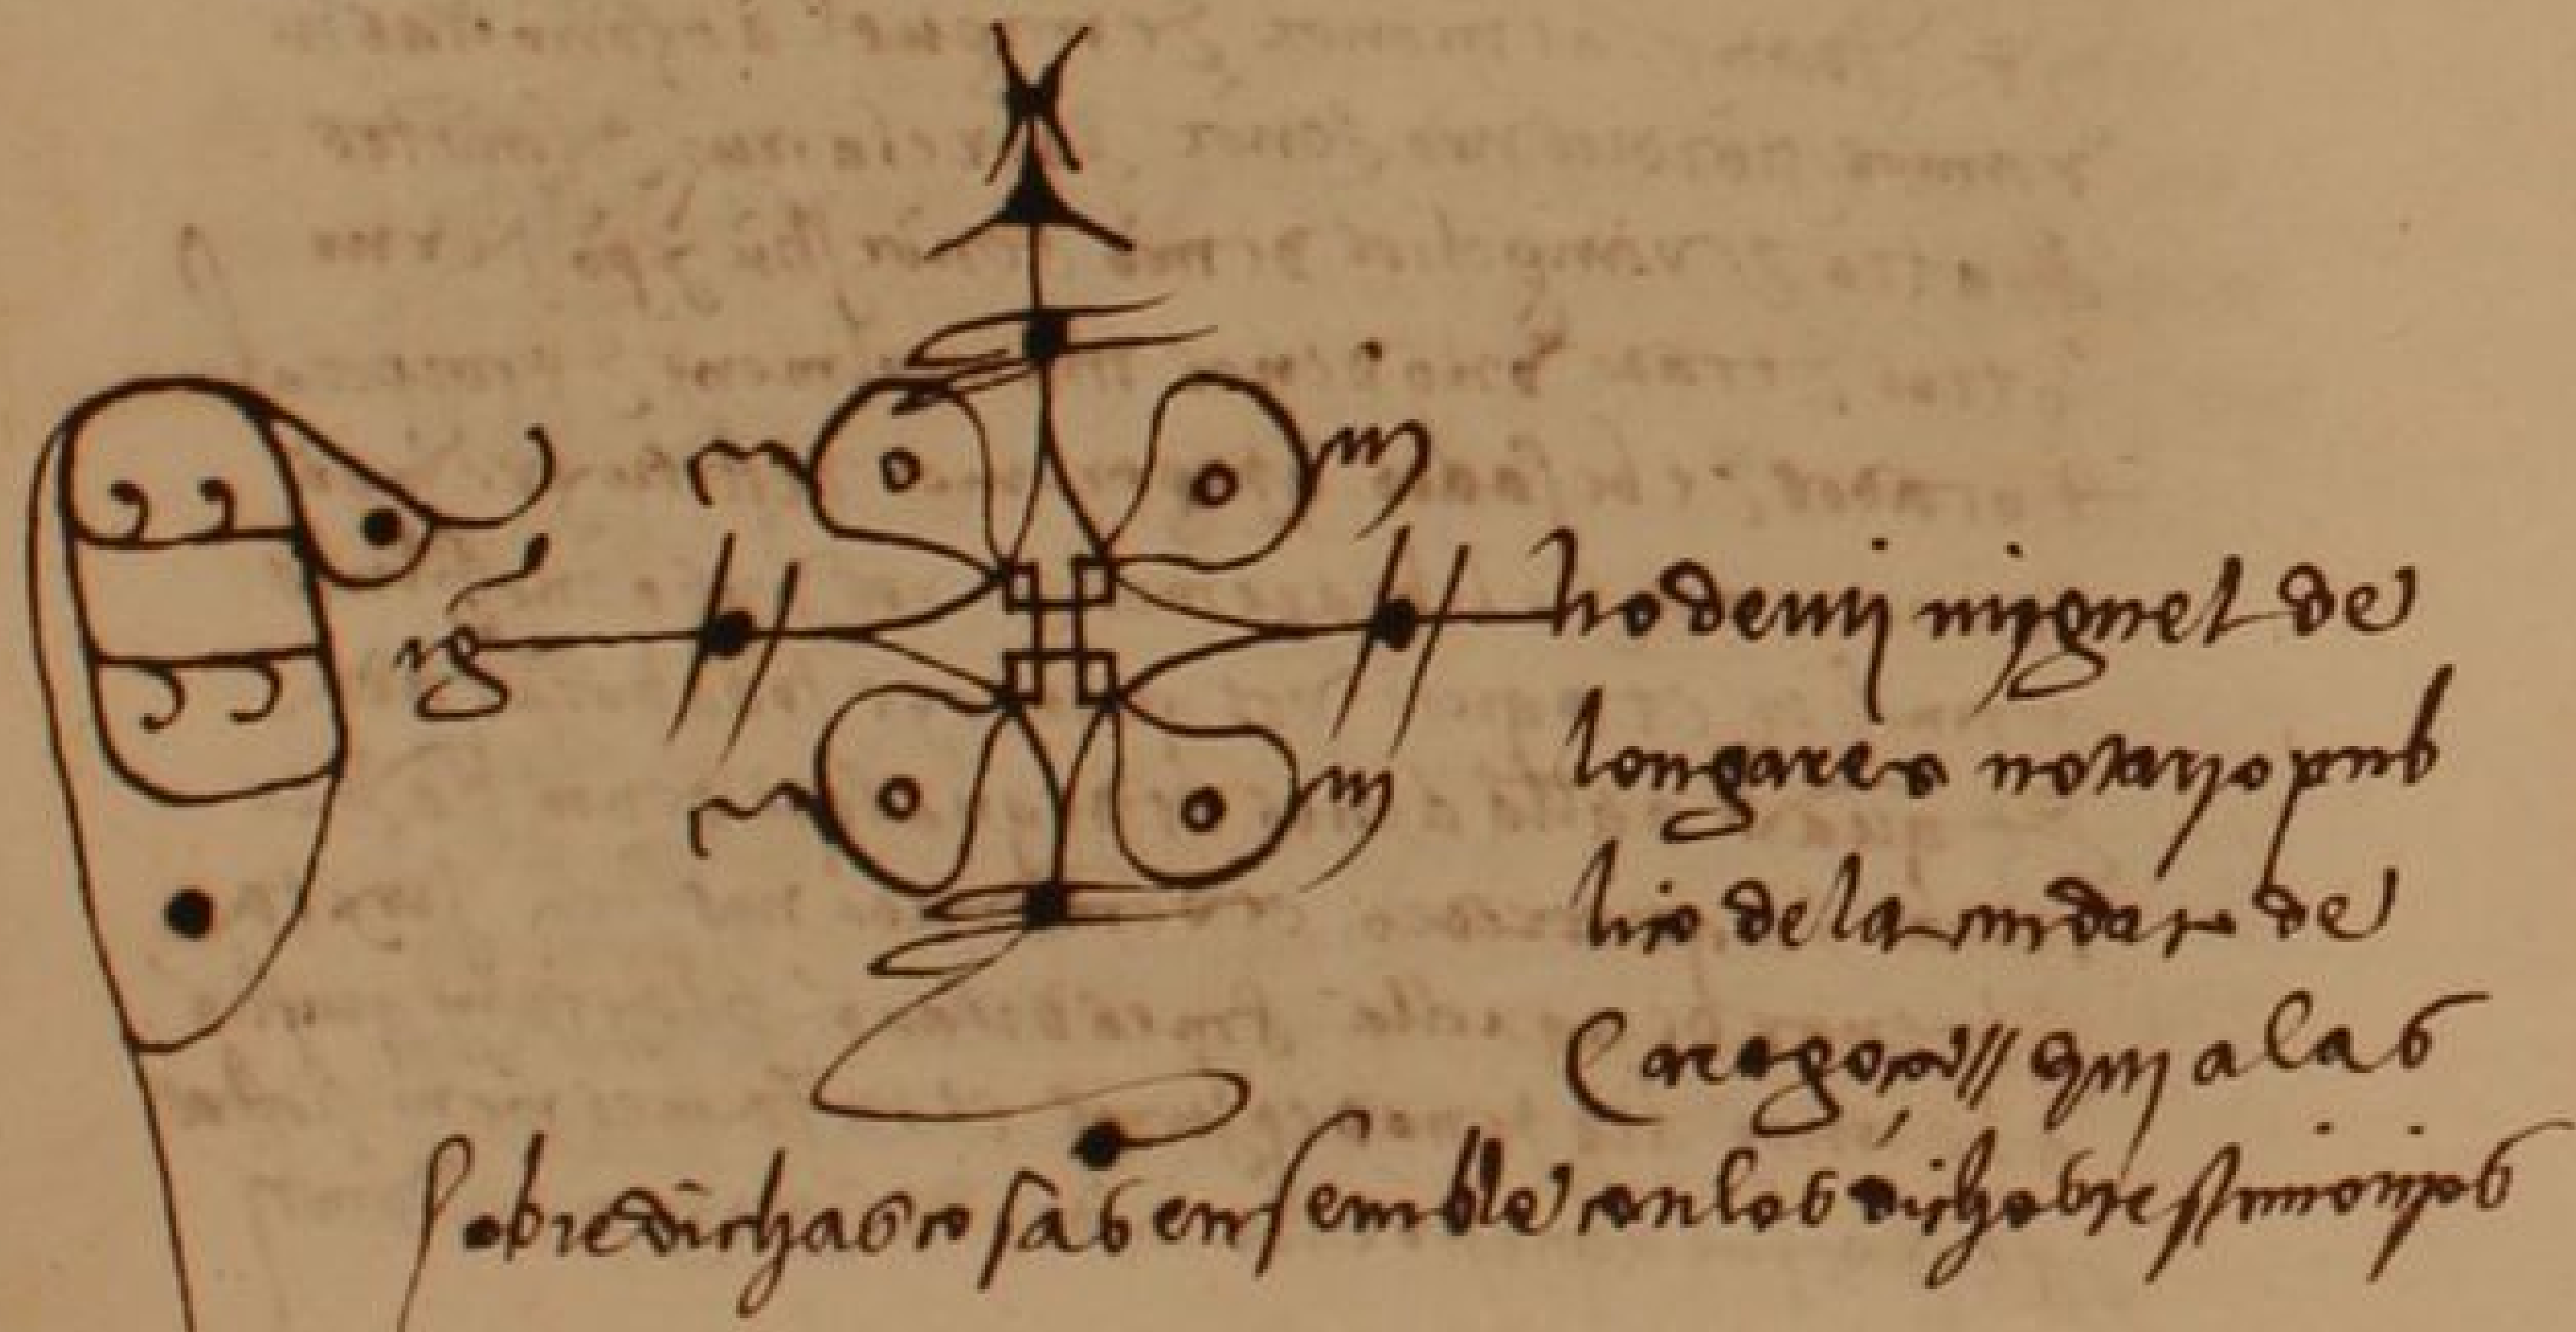 Sig no de mj mjguel de
longares notarjo pub
lico dela ciudat de
Caragoça // quj alas
sobredichas cosas ensemble con los dichos testimonjos